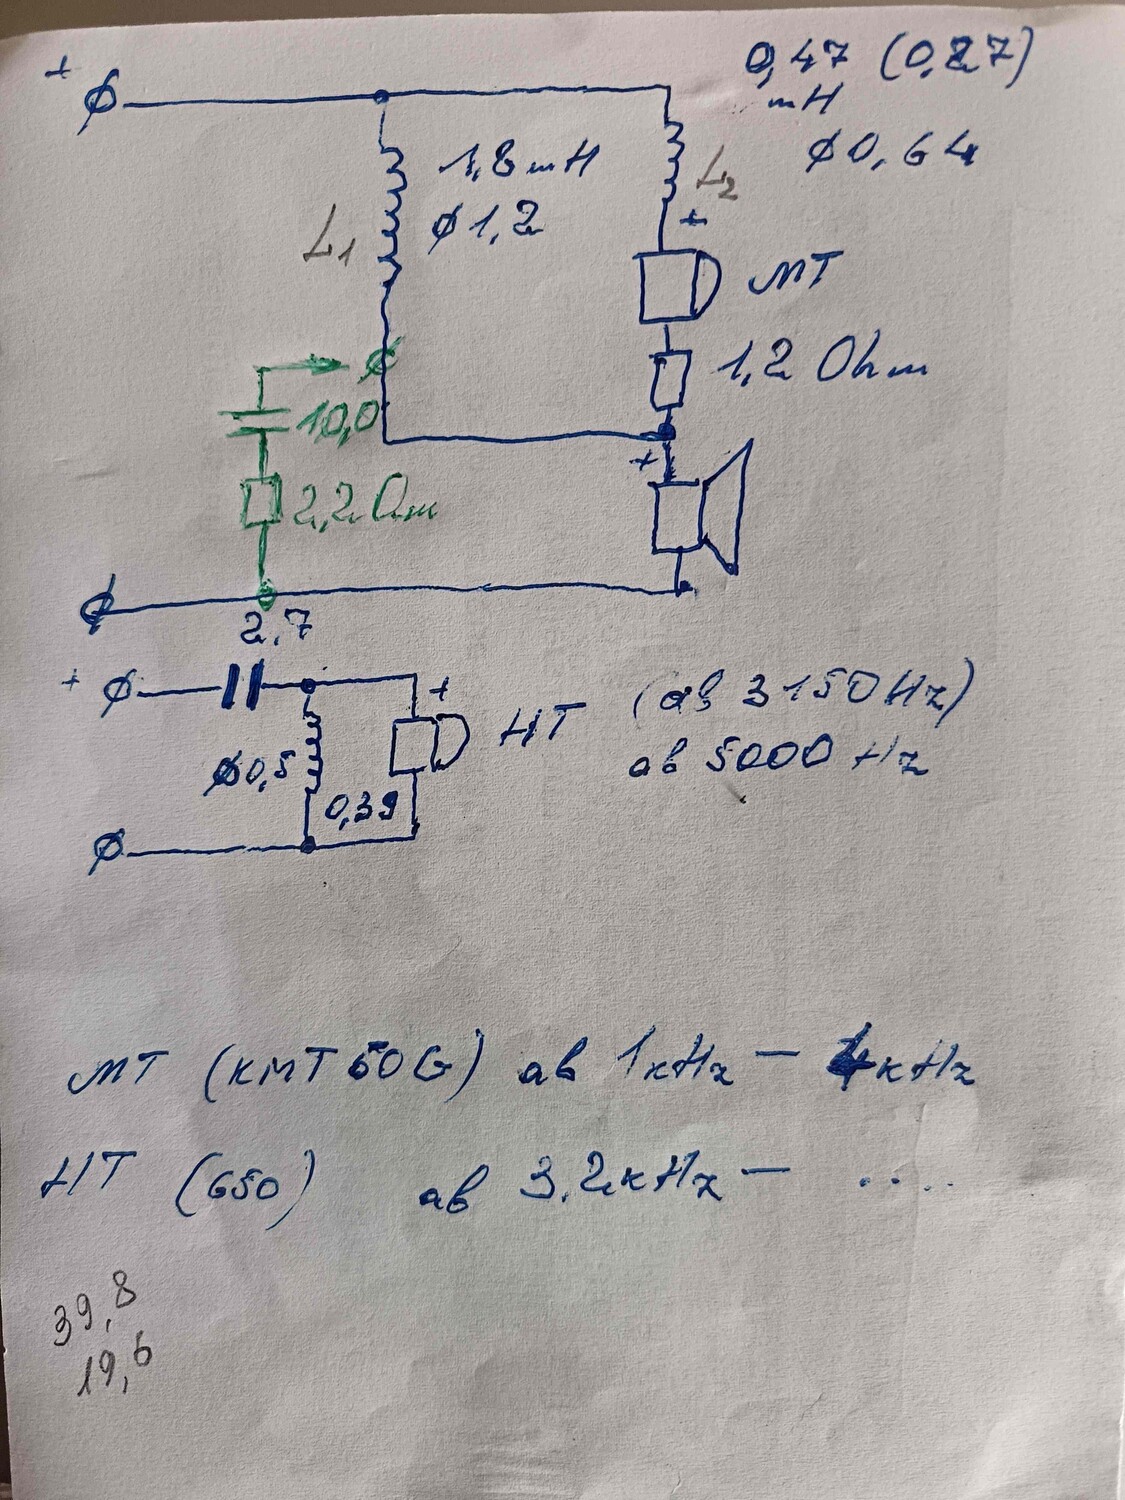 +
0,47 (0,27)
mH
ø0,64
1,8mH
ø1,2
L1
L2
+
MT
1,2 Ohm
10,0
+
2,2 Om
2,7
+
+
HT
(ab 3150Hz)
ab 5000 Hz
ø0,5
0,39
MT (KMT60G) ab 1kHz – 4kHz
HT (G50) ab 3.2kHz – ....
39,8
19,6